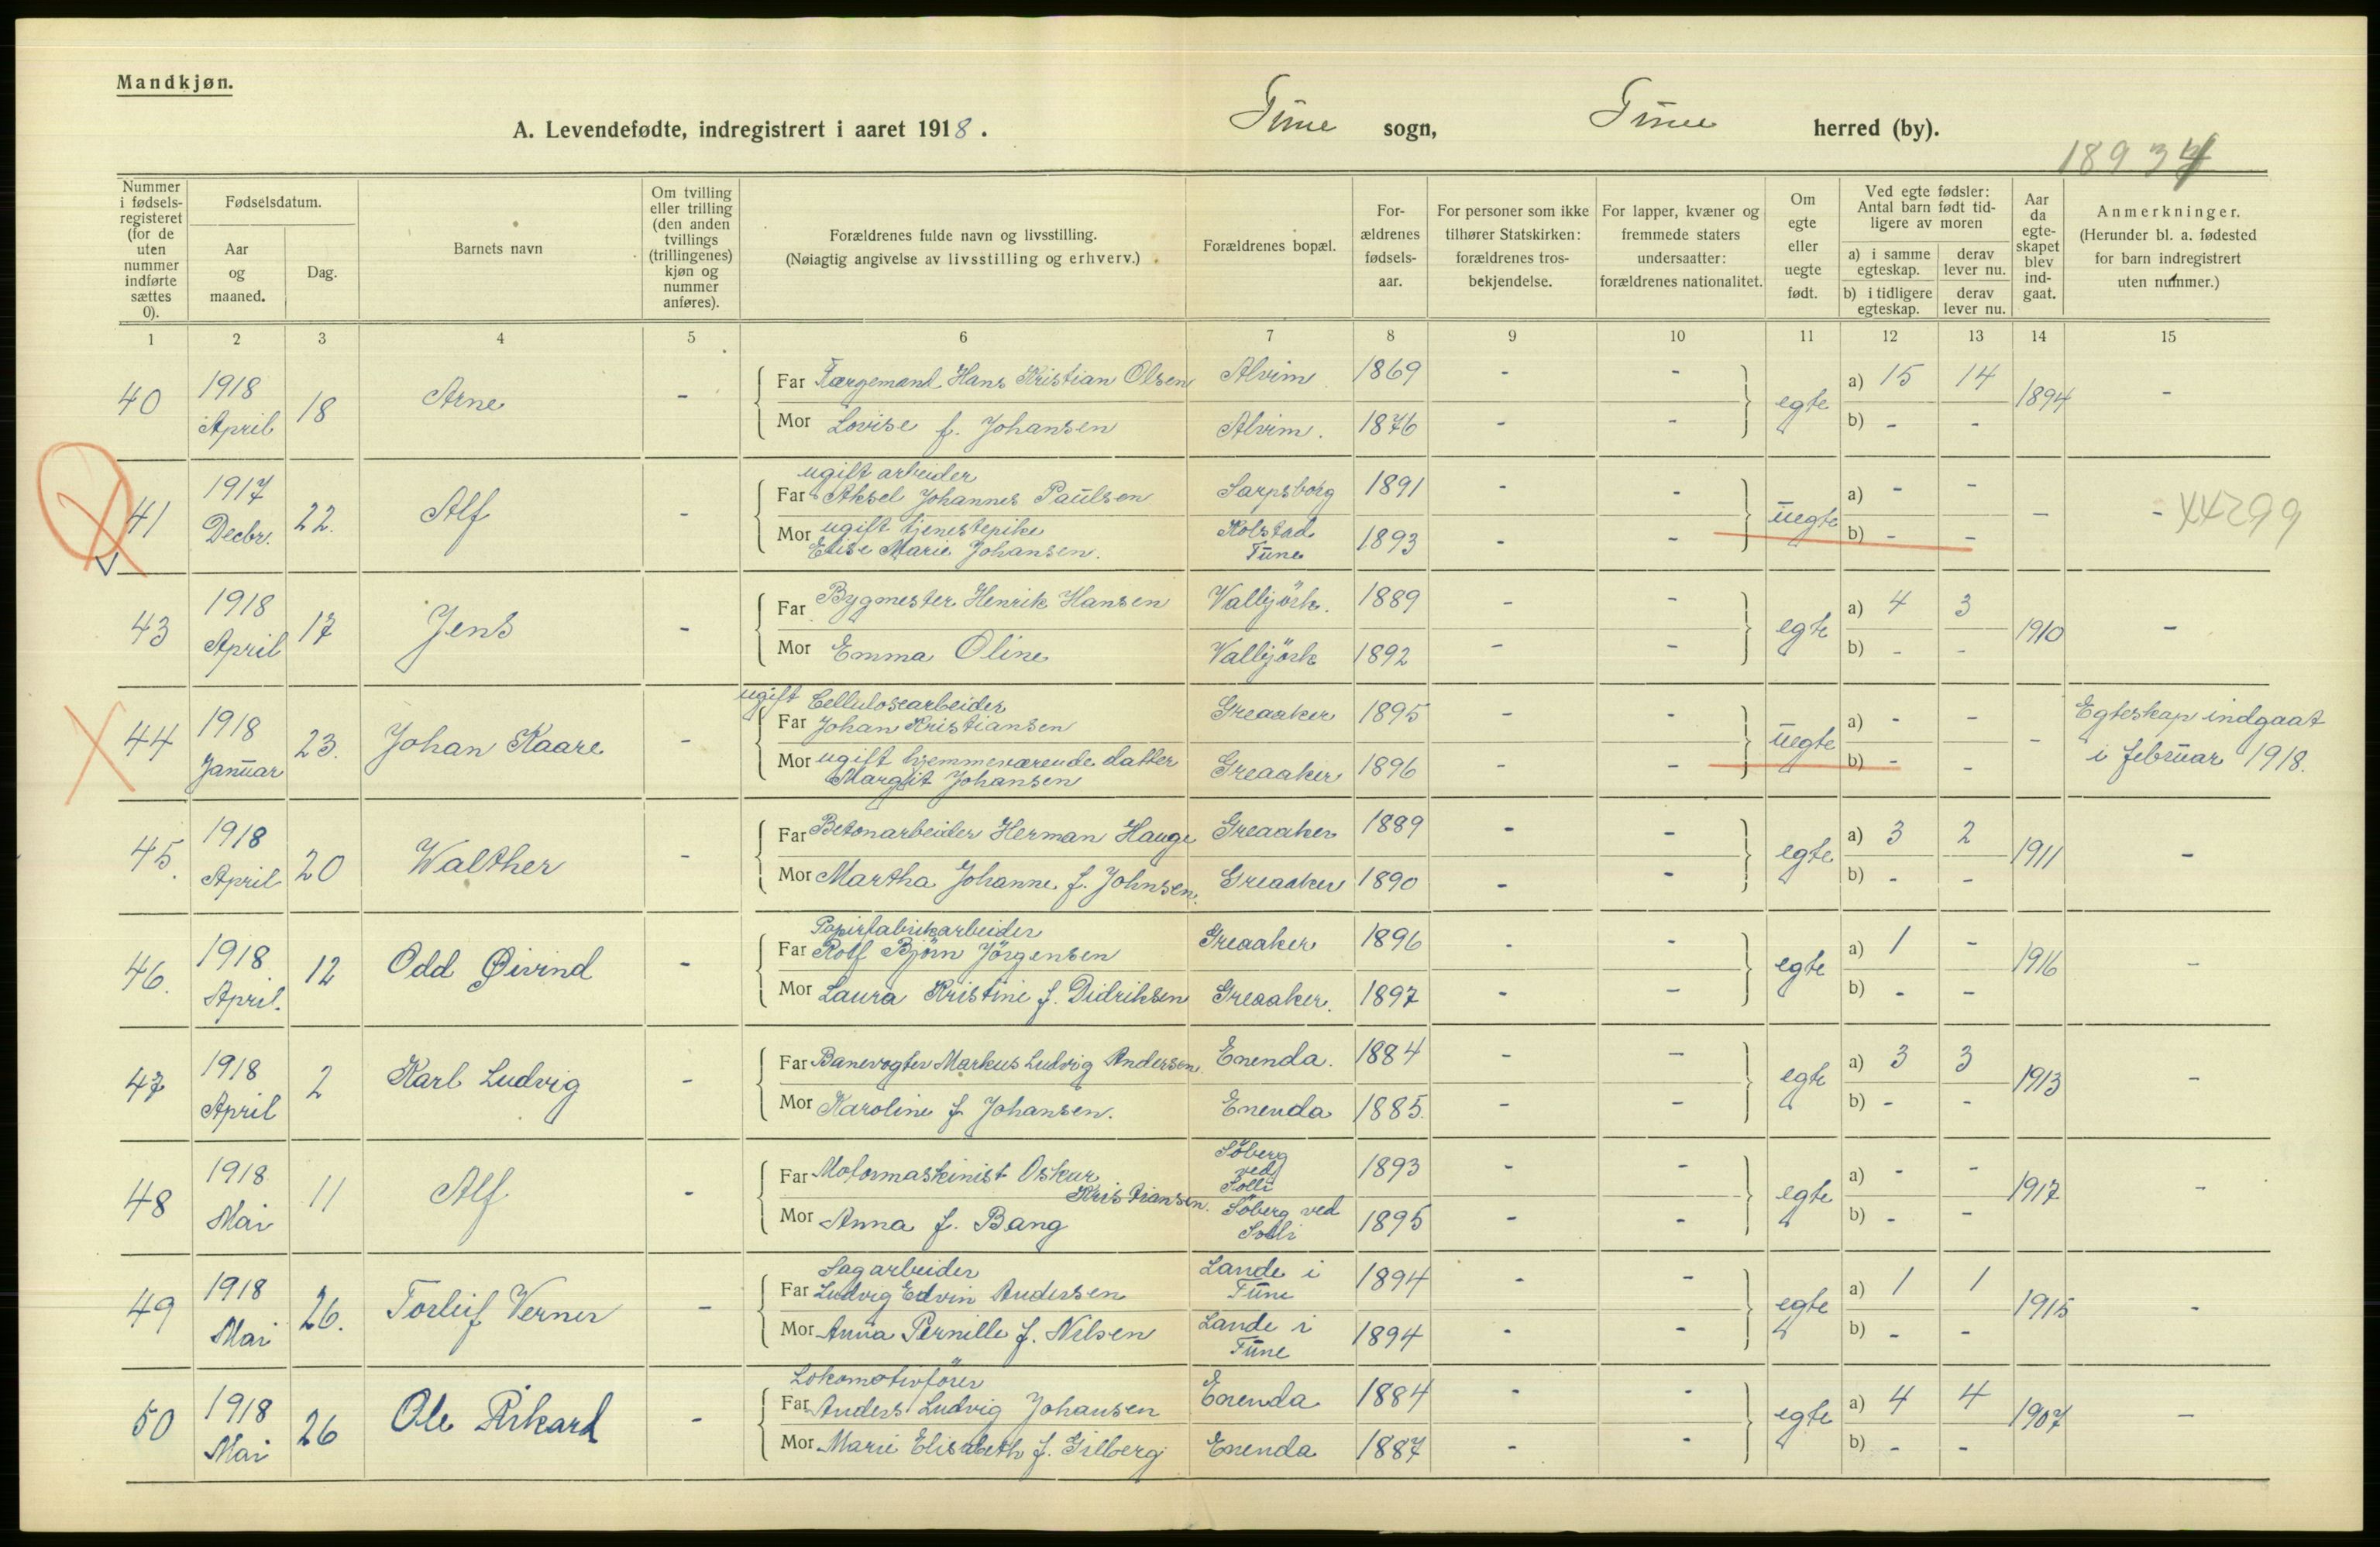 Mandkjøn.
A. Levendefødte, indregistrert i aaret 1918. Tune sogn, Tune herred (by).
18934
Nummer i fødsels-registeret (for de uten nummer indførte sættes 0).
Fødselsdatum.
Aar og maaned.
Dag.
Barnets navn
Om tvilling eller trilling (den anden tvillings (trillingenes) kjøn og nummer anføres).
Forældrenes fulde navn og livsstilling.
(Nøiagtig angivelse av livsstilling og erhverv.)
Forældrenes bopæl.
For-ældrenes fødsels-aar.
For personer som ikke tilhører Statskirken: forældrenes tros-bekjendelse.
For lapper, kvæner og fremmede staters undersaatter: forældrenes nationalitet.
Om egte eller uegte født.
Ved egte fødsler: Antal barn født tid-ligere av moren
a) i samme egteskap.
derav lever nu.
b) i tidligere egteskap.
derav lever nu.
Aar da egte-skapet blev ind-gaat.
Anmerkninger.
(Herunder bl. a. fødested for barn indregistrert uten nummer.)
1 2 3 4 5 6 7 8 9 10 11 12 13 14 15
40 1918 April 18 Arne - Far Færgemand Hans Kristian Olsen Alvim 1869 - - egte a) 15 14 1894 -
Mor Lovise f. Johansen Alvim. 1876 - - b) - -
41 1917 Decbr. 22. Alf - ugift arbeider
Far Aksel Johannes Paulsen Sarpsborg 1891 - - uegte a) - - - - 44299
Mor ugift tjenestepike
Elise Marie Johansen. Kolstad Tune 1893 - - b) - -
43 1918 April 17 Jens - Far Bygmester Henrik Hansen Valbjörk. 1889 - - egte a) 4 3 1910 -
Mor Emma Oline Valbjörk 1892 - - b) - -
44 1918 Januar 23. Johan Kaare - ugift Cellulosearbeider
Far Johan Kristiansen Greaaker 1895 - - uegte a) - - - Egteskap indgaat
Mor ugift hjemmeværende datter
Margit Johansen Greaaker 1896 - - b) - - i februar 1918.
45. 1918 April 20 Walther - Far Betonarbeider Herman Hauge Greaaker 1889 - - egte a) 3 2 1911 -
Mor Martha Johanne f. Johnsen. Greaaker 1890 - - b) - -
46. 1918 April. 12 Odd Øivind - Papirfabrikarbeider
Far Rolf Bjørn Jörgensen Greaaker 1896 - - egte a) 1 - 1916 -
Mor Laura Kristine f. Didriksen Greaaker. 1897 - - b) - -
47 1918 April 2 Karl Ludvig - Far Banevogter Markus Ludvig Andersen Enenda. 1884 - - egte a) 3 3 1913 -
Mor Karoline f. Johansen. Enenda 1885. - - b) - -
48 1918 Mai 11 Alf - Far Motormaskinist Oskar
Kristiansen. Söberg ved Solli 1893 - - egte a) - - 1917 -
Mor Anna f. Bang Söberg ved Solli 1895 - - b) - -
49 1918 Mai 26. Torleif Verner - Sagarbeider
Far Ludvig Edvin Andersen Lande i Tune 1894 - - egte a) 1 1 1915 -
Mor Anna Pernille f. Nilsen Lande i Tune 1894 - - b) - -
50 1918 Mai 26 Ole Rikard - Lokomotivfører
Far Anders Ludvig Johansen Enenda 1884 - - egte a) 4 4 1907 -
Mor Marie Elisabeth f. Gilberg Enenda 1887 - - b) - -